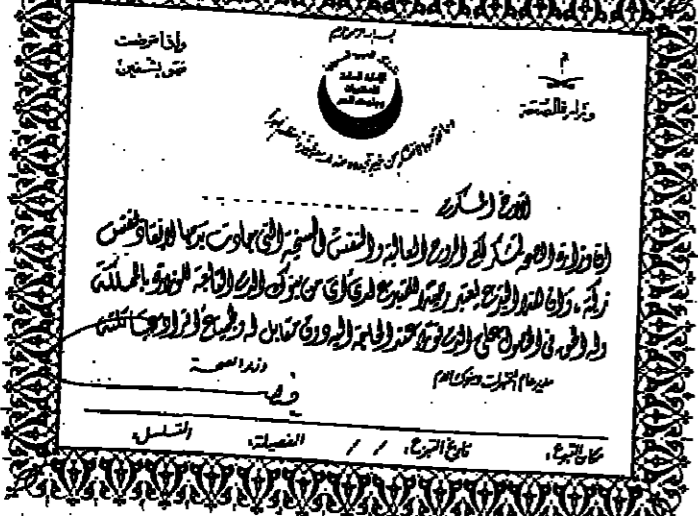 بسم الله الرحمن الرحيم
وإذا مرضت
فهو يشفين
وزارة الصحة
وما تقدموا لأنفسكم من خير تجدوه عند الله هو خيراً وأعظم أجراً
الأخ المكرم
ان وزارة الصحة لتشكر لكم الروح العالية والنفس السخية التي جادت بدمها لإنقاذ نفس
زكية، وان هذا التبرع يعتبر رصيداً للمتبرع لدى أي من بنوك الدم التابعة للوزارة بالمملكة
وله الحق في الحصول على الدم فوراً عند الحاجة اليه دون مقابل له ولجميع أفراد عائلته
مدير عام المختبرات وبنوك الدم
وزير الصحة
مكان التبرع:
تاريخ التبرع: / /
الفصيلة:
التسلسل: